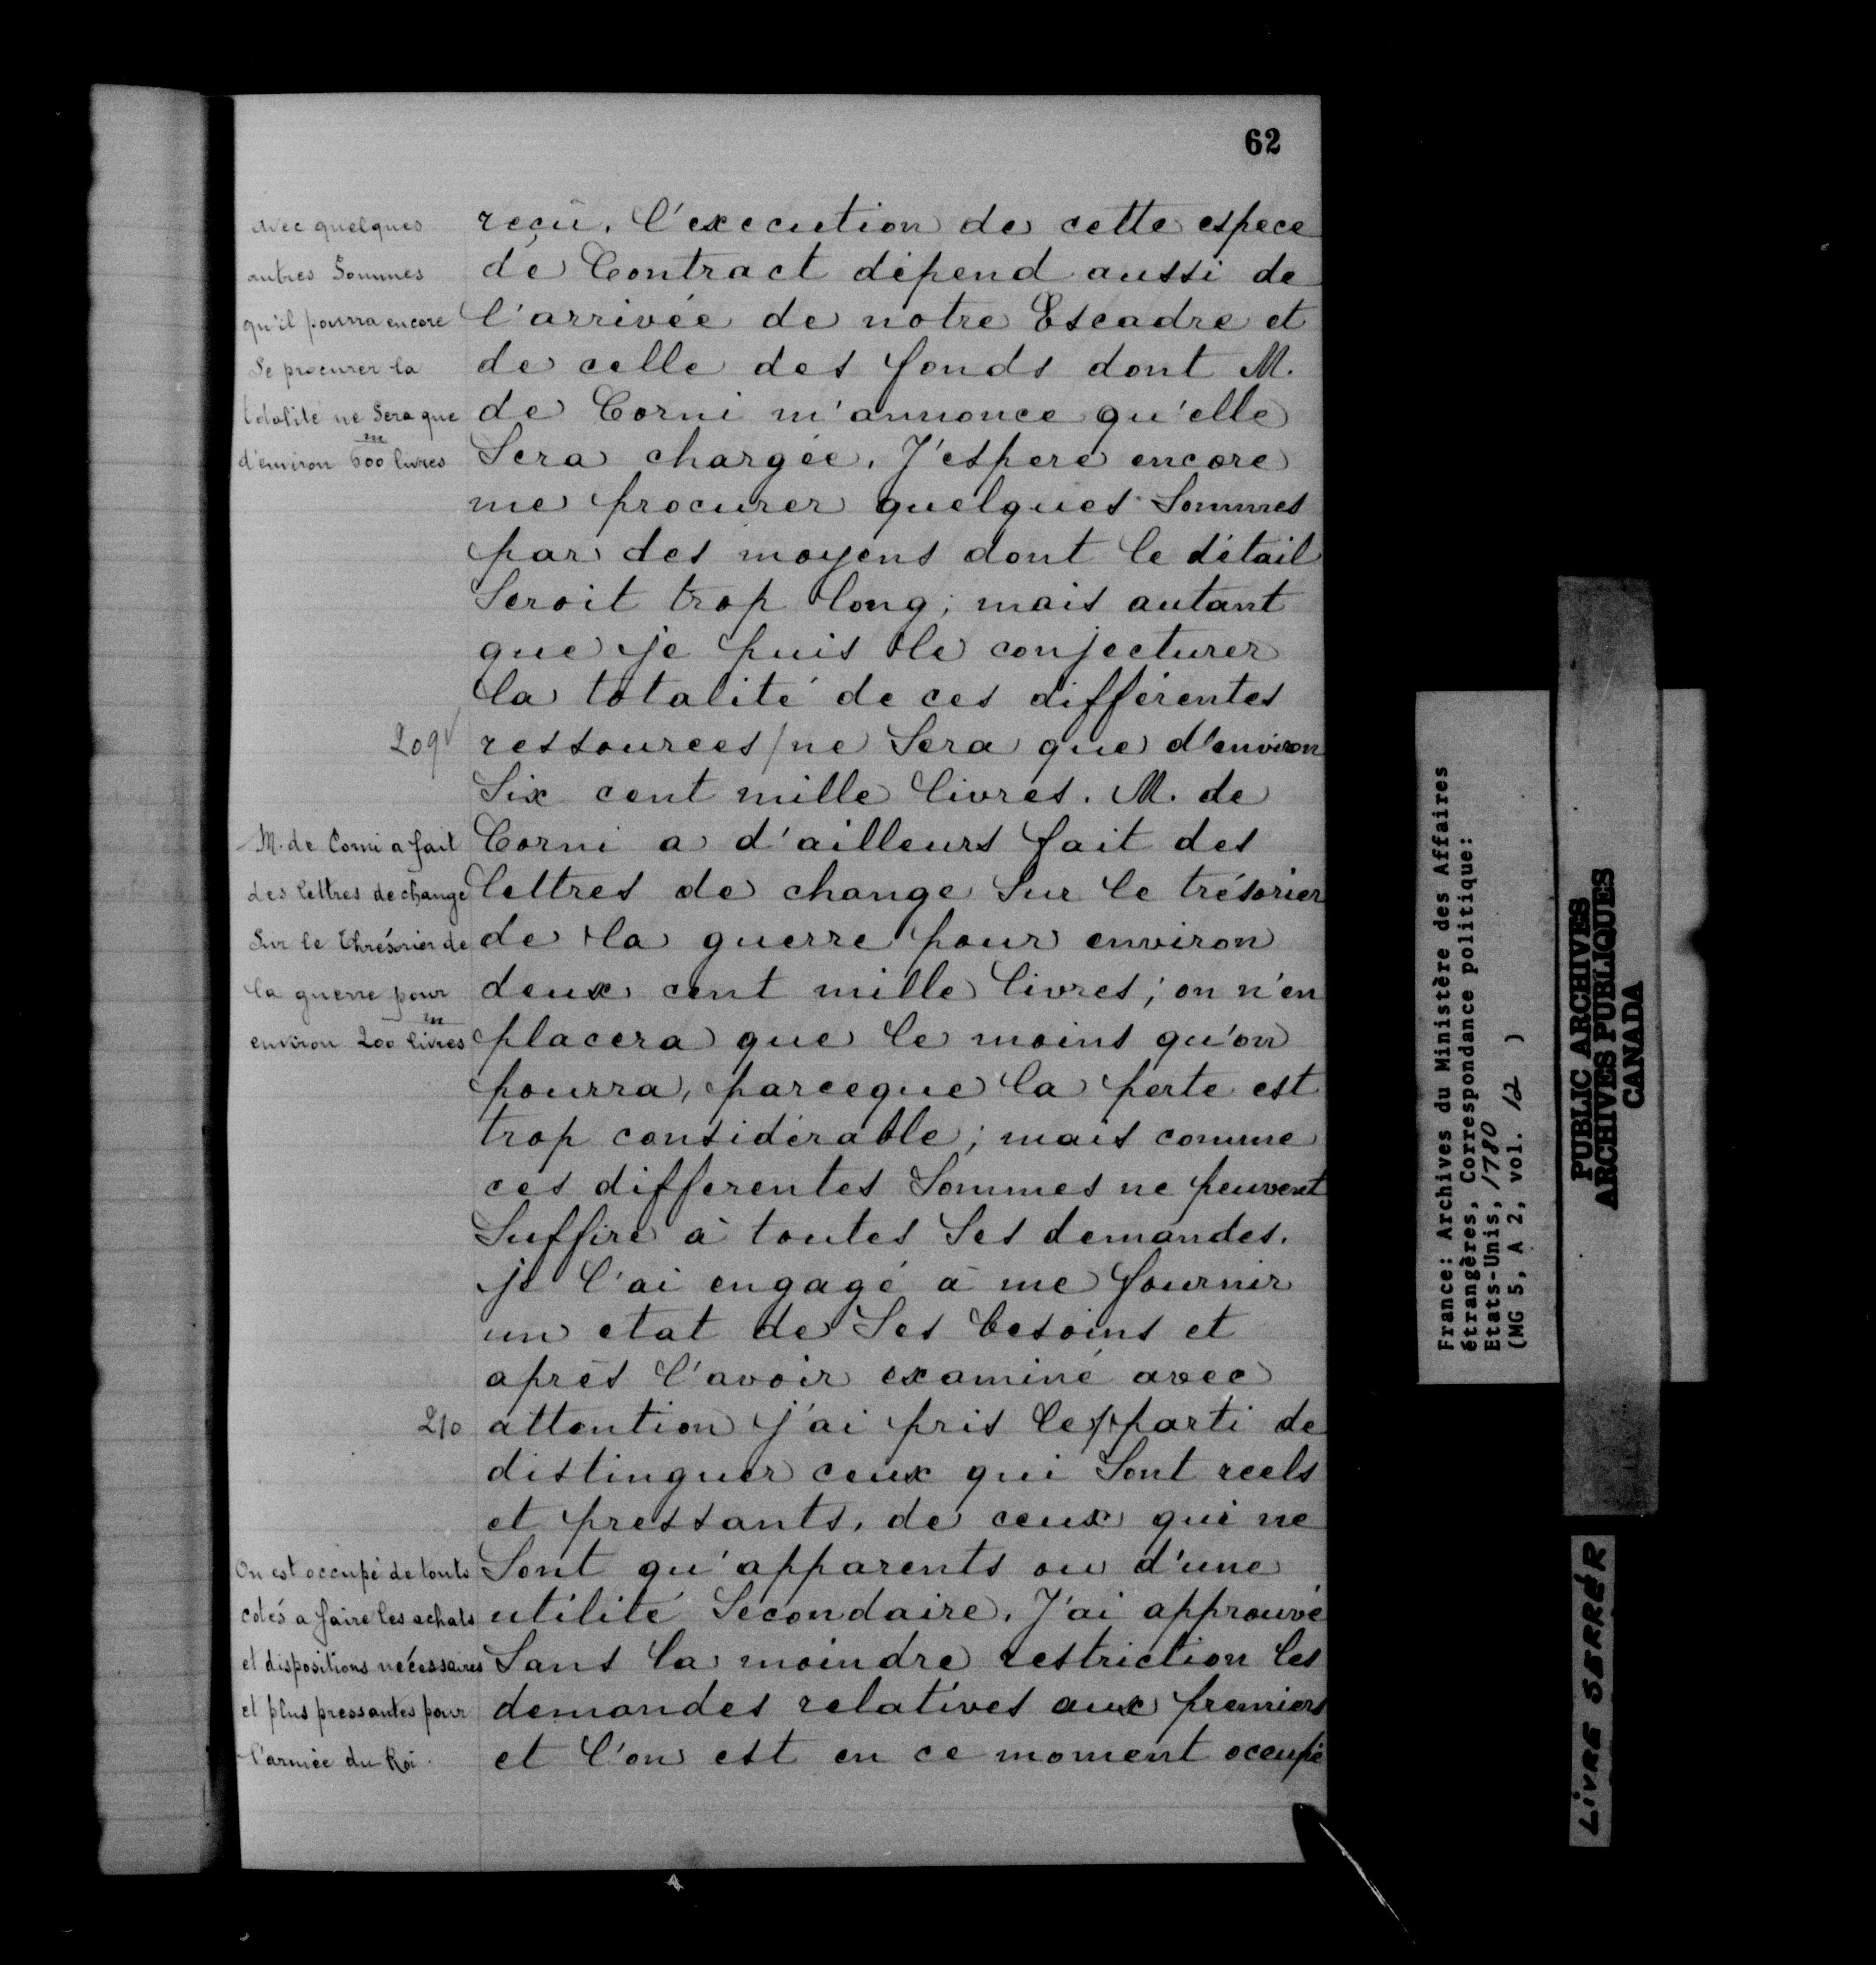 62
avec quelques
autres Sommes
qu'il pourra encore
Se procurer la
totalité ne Sera que
d'environ 600 m livres
reçû. l'execution de cette espece
de Contract dépend aussi de
l'arrivée de notre Escadre et
de celle des fonds dont M.
de Corni m'annonce qu'elle
Sera chargée. J'espere encore
me procurer quelques Sommes
par des moyens dont le détail
Seroit trop long; mais autant
que je puis le conjecturer
la totalité de ces différentes
209v
ressources/ne Sera que d'environ
Six cent mille livres. M. de
M. de Corni a fait
des lettres de change
Sur le thrésorier de
la guerre pour
environ 200 m livres
Corni a d'ailleurs fait des
lettres de change Sur le trésorier
de la guerre pour environ
deux cent mille livres; on n'en
placera que le moins qu'on
pourra, parceque la perte est
trop considérable; mais comme
ces differentes Sommes ne peuvent
Suffire à toutes Ses demandes.
je l'ai engagé à me fournir
un etat de Ses besoins et
après l'avoir examiné avec
210
attention j'ai pris le/parti de
distinguer ceux qui Sont reels
et pressants, de ceux qui ne
On est occupé de touts
cotés a faire les achats
et dispositions nécessaires
et plus pressantes pour
l'armée du Roi.
Sont qu'apparents ou d'une
utilité Secondaire. J'ai approuvé
Sans la moindre restriction les
demandes relatives aux premiers
et l'on est en ce moment occupé
France: Archives du Ministère des Affaires
étrangères, Correspondance politique:
Etats-Unis, 1780
(MG 5, A 2, vol. 12 )
PUBLIC ARCHIVES
ARCHIVES PUBLIQUES
CANADA
LIVRE SERRÉR